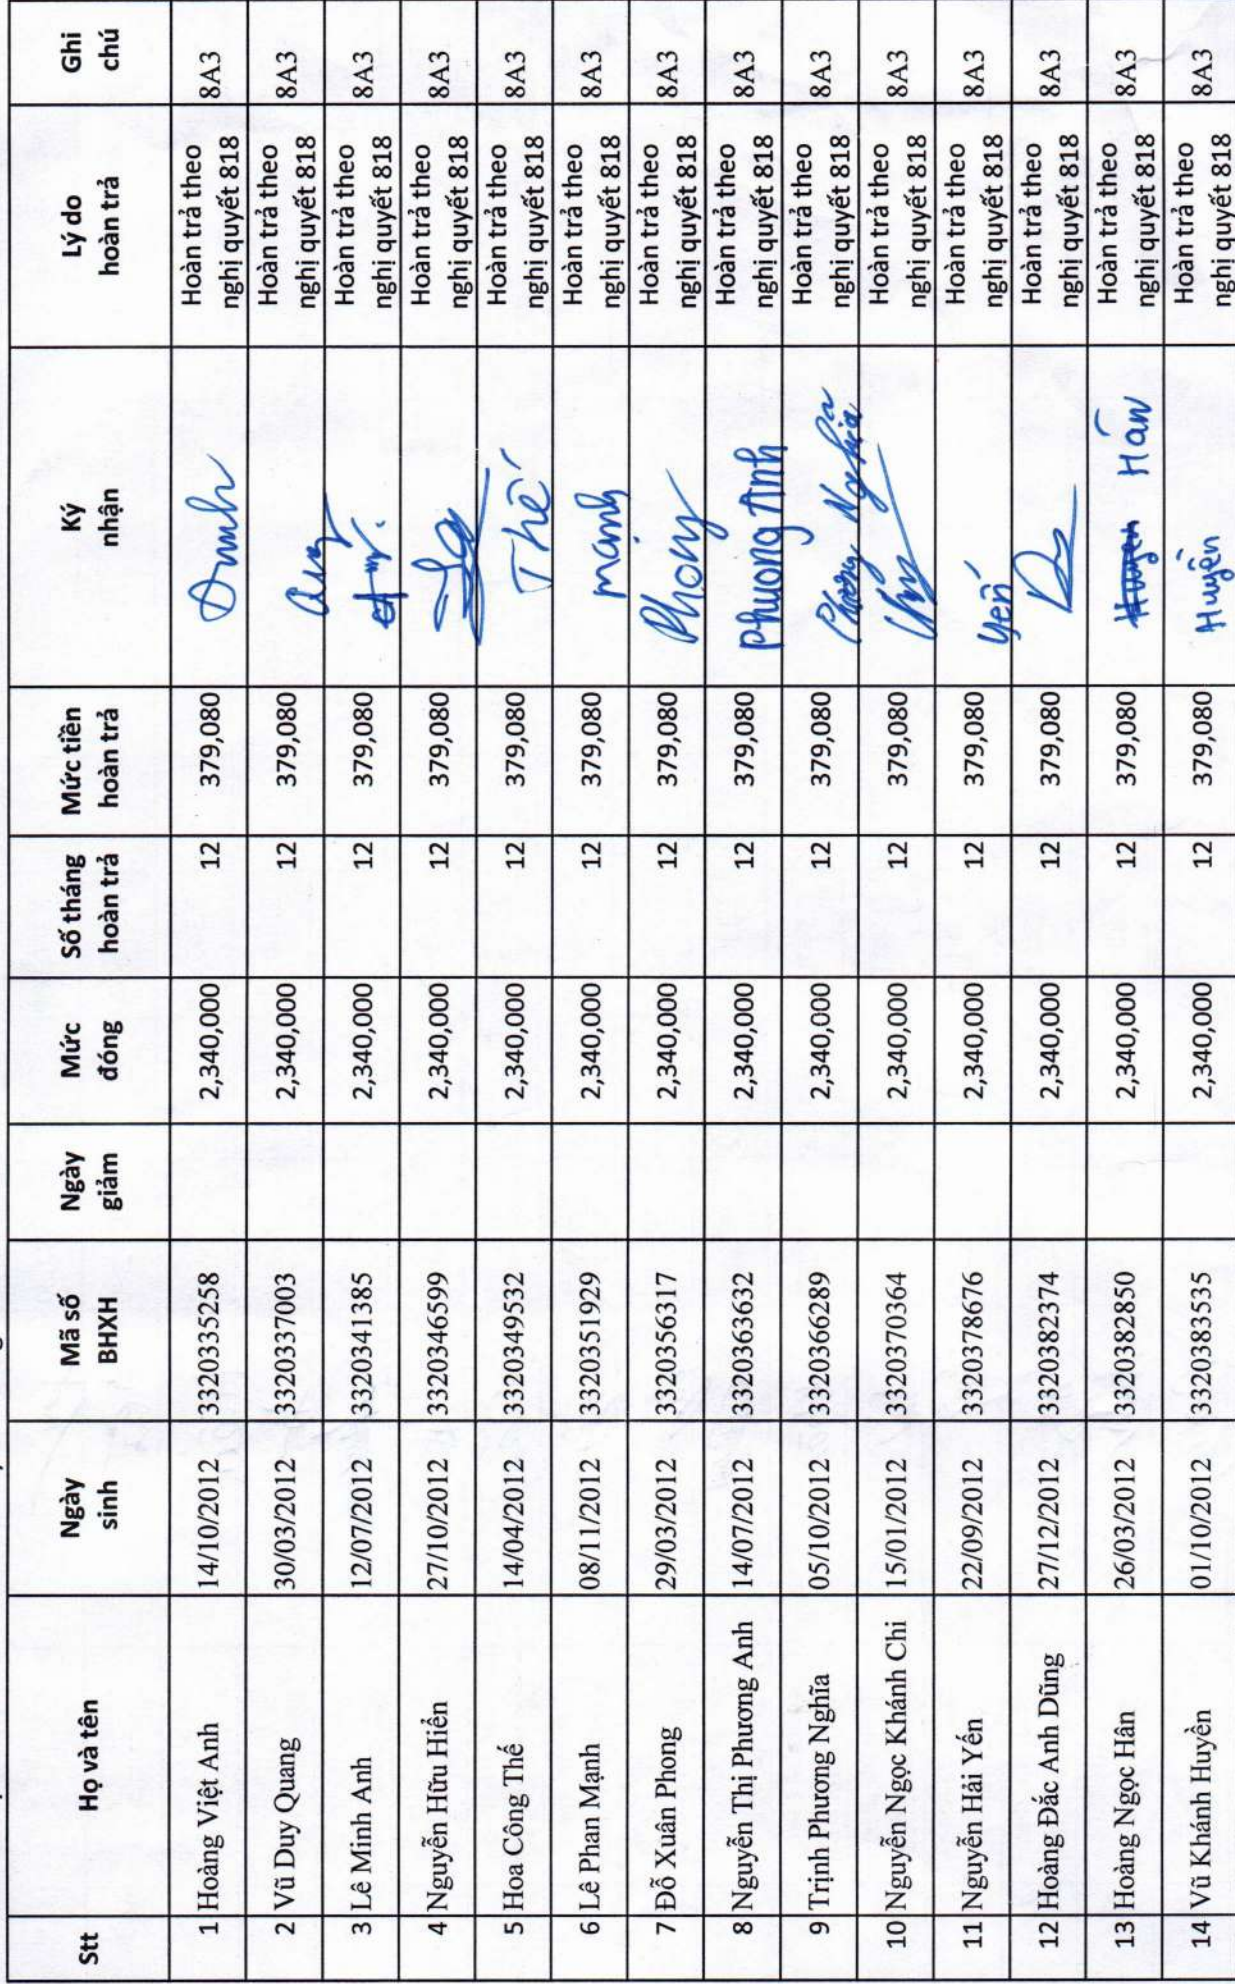 Stt Họ và tên Ngày sinh Mã số BHXH Ngày giảm Mức đóng Số tháng hoàn trả Mức tiền hoàn trả Ký nhận Lý do hoàn trả Ghi chú
1 Hoàng Việt Anh 14/10/2012 33320335258 2,340,000 12 379,080 Hoàn trả theo nghị quyết 818 8A3
2 Vũ Duy Quang 30/03/2012 33320337003 2,340,000 12 379,080 Hoàn trả theo nghị quyết 818 8A3
3 Lê Minh Anh 12/07/2012 33320341385 2,340,000 12 379,080 Hoàn trả theo nghị quyết 818 8A3
4 Nguyễn Hữu Hiển 27/10/2012 33320346599 2,340,000 12 379,080 Hoàn trả theo nghị quyết 818 8A3
5 Hoa Công Thế 14/04/2012 33320349532 2,340,000 12 379,080 Thế Hoàn trả theo nghị quyết 818 8A3
6 Lê Phan Mạnh 08/11/2012 33320351929 2,340,000 12 379,080 mạnh Hoàn trả theo nghị quyết 818 8A3
7 Đỗ Xuân Phong 29/03/2012 33320356317 2,340,000 12 379,080 Phong Hoàn trả theo nghị quyết 818 8A3
8 Nguyễn Thị Phương Anh 14/07/2012 33320363632 2,340,000 12 379,080 Phuong Anh Hoàn trả theo nghị quyết 818 8A3
9 Trịnh Phương Nghĩa 05/10/2012 33320366289 2,340,000 12 379,080 Phương Nghĩa Hoàn trả theo nghị quyết 818 8A3
10 Nguyễn Ngọc Khánh Chi 15/01/2012 33320370364 2,340,000 12 379,080 Hoàn trả theo nghị quyết 818 8A3
11 Nguyễn Hải Yến 22/09/2012 33320378676 2,340,000 12 379,080 yến Hoàn trả theo nghị quyết 818 8A3
12 Hoàng Đắc Anh Dũng 27/12/2012 33320382374 2,340,000 12 379,080 Hoàn trả theo nghị quyết 818 8A3
13 Hoàng Ngọc Hân 26/03/2012 33320382850 2,340,000 12 379,080 Hân Hoàn trả theo nghị quyết 818 8A3
14 Vũ Khánh Huyền 01/10/2012 33320383535 2,340,000 12 379,080 Huyền Hoàn trả theo nghị quyết 818 8A3